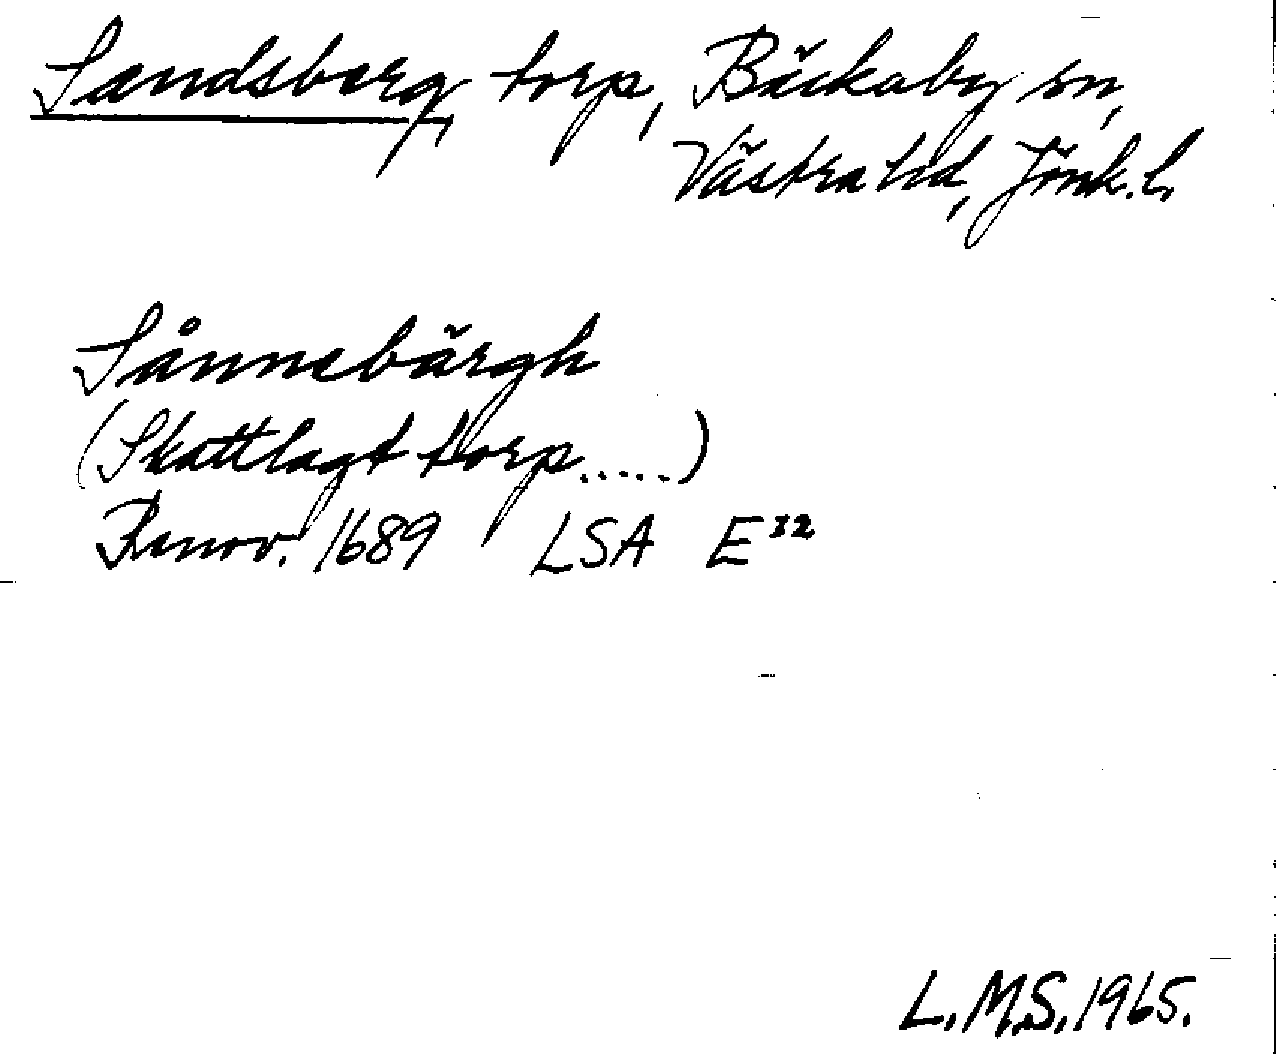 Sandsberg, torp, Bäckaby sn,
Västra hd, Jönk. l.
Sånnebärgh
(Skattlagt torp.....)
Renov. 1689 LSA E32
L.M.S. 1965.